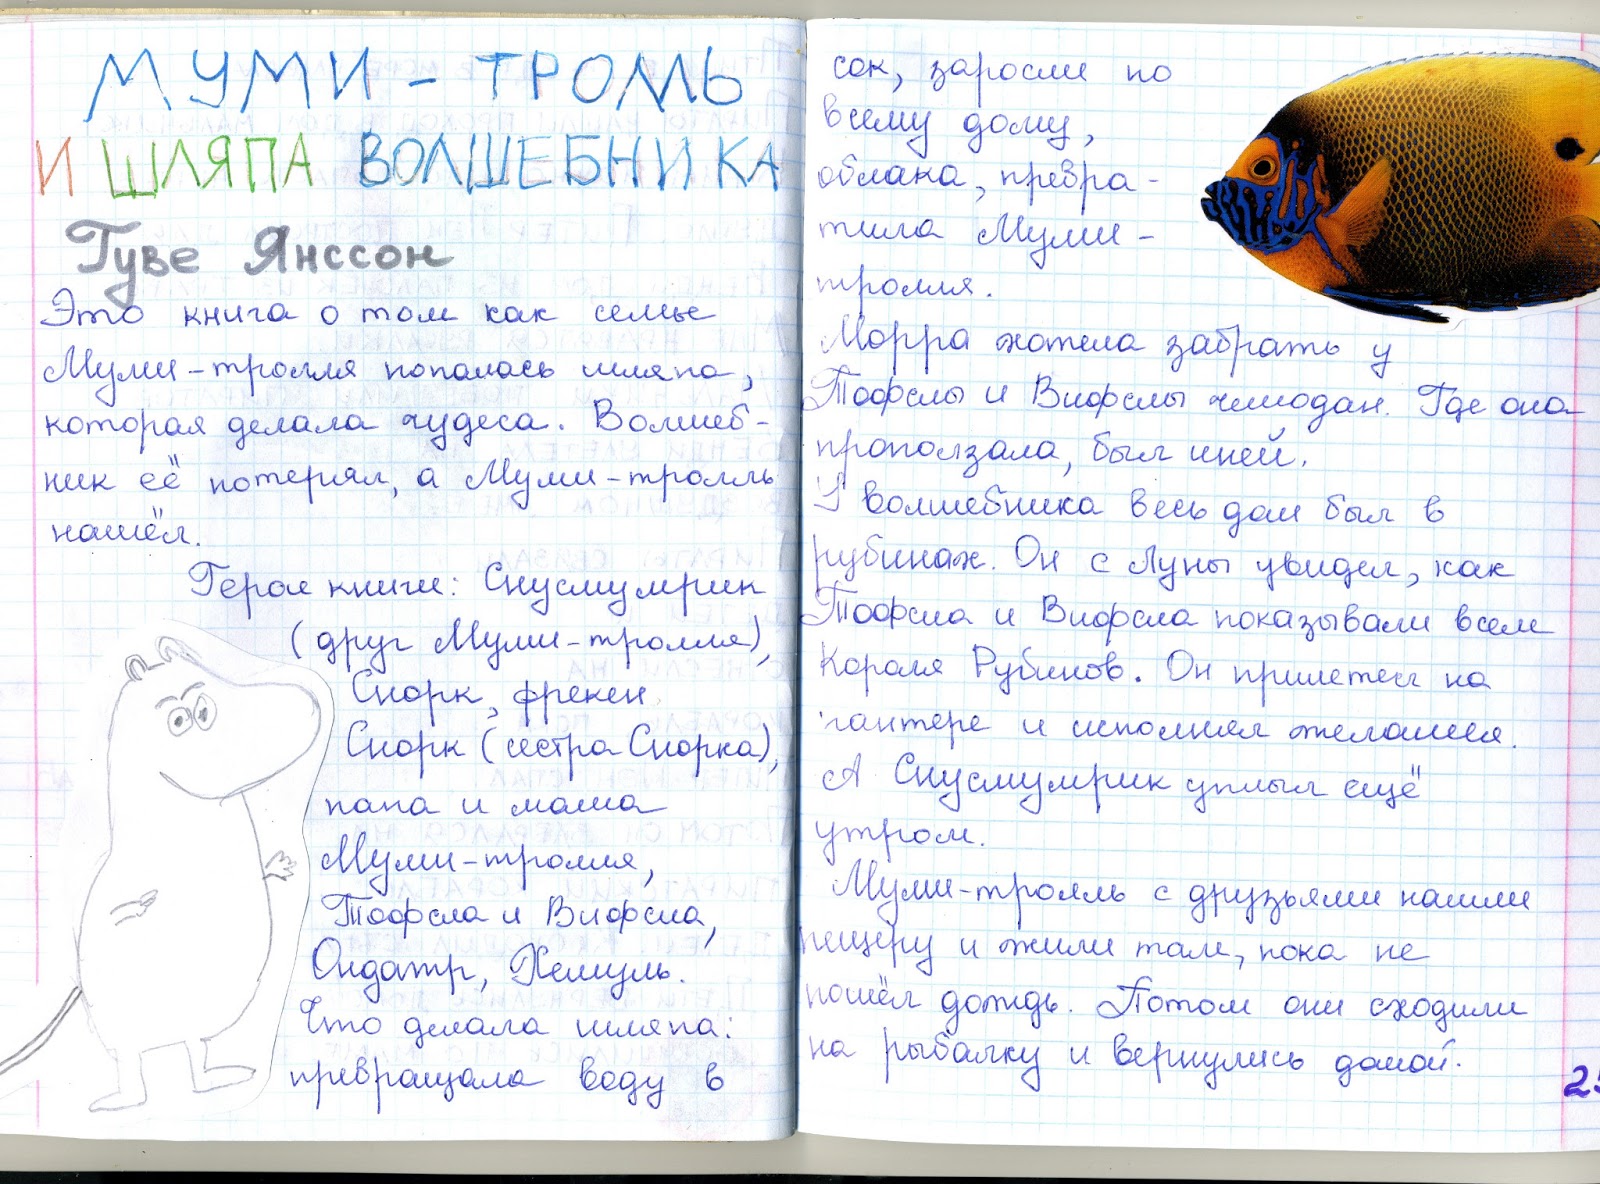 МУМИ-ТРОЛЛЬ
И ШЛЯПА ВОЛШЕБНИКА
Туве Янссон
Это книга о том как семье
Муми-тролля попалась шляпа,
которая делала чудеса. Волшеб-
ник её потерял, а Муми-тролль
нашёл.
Герои книги: Снусмумрик
(друг Муми-тролля),
Снорк, фрекен
Снорк (сестра Снорка),
папа и мама
Муми-тролля,
Тофсла и Вифсла,
Ондатр, Хемуль.
Что делала шляпа:
превращала воду в
сок, заросли по
всему дому,
облака, превра-
тила Муми-
тролля.
Морра хотела забрать у
Тофслы и Вифслы чемодан. Где она
проползала, был иней.
У волшебника весь дом был в
рубинах. Он с Луны увидел, как
Тофсла и Вифсла показывали всем
Короля Рубинов. Он прилетел на
пантере и исполнял желания.
А Снусмумрик уплыл ещё
утром.
Муми-тролль с друзьями нашли
пещеру и жили там, пока не
пошёл дождь. Потом они сходили
на рыбалку и вернулись домой.